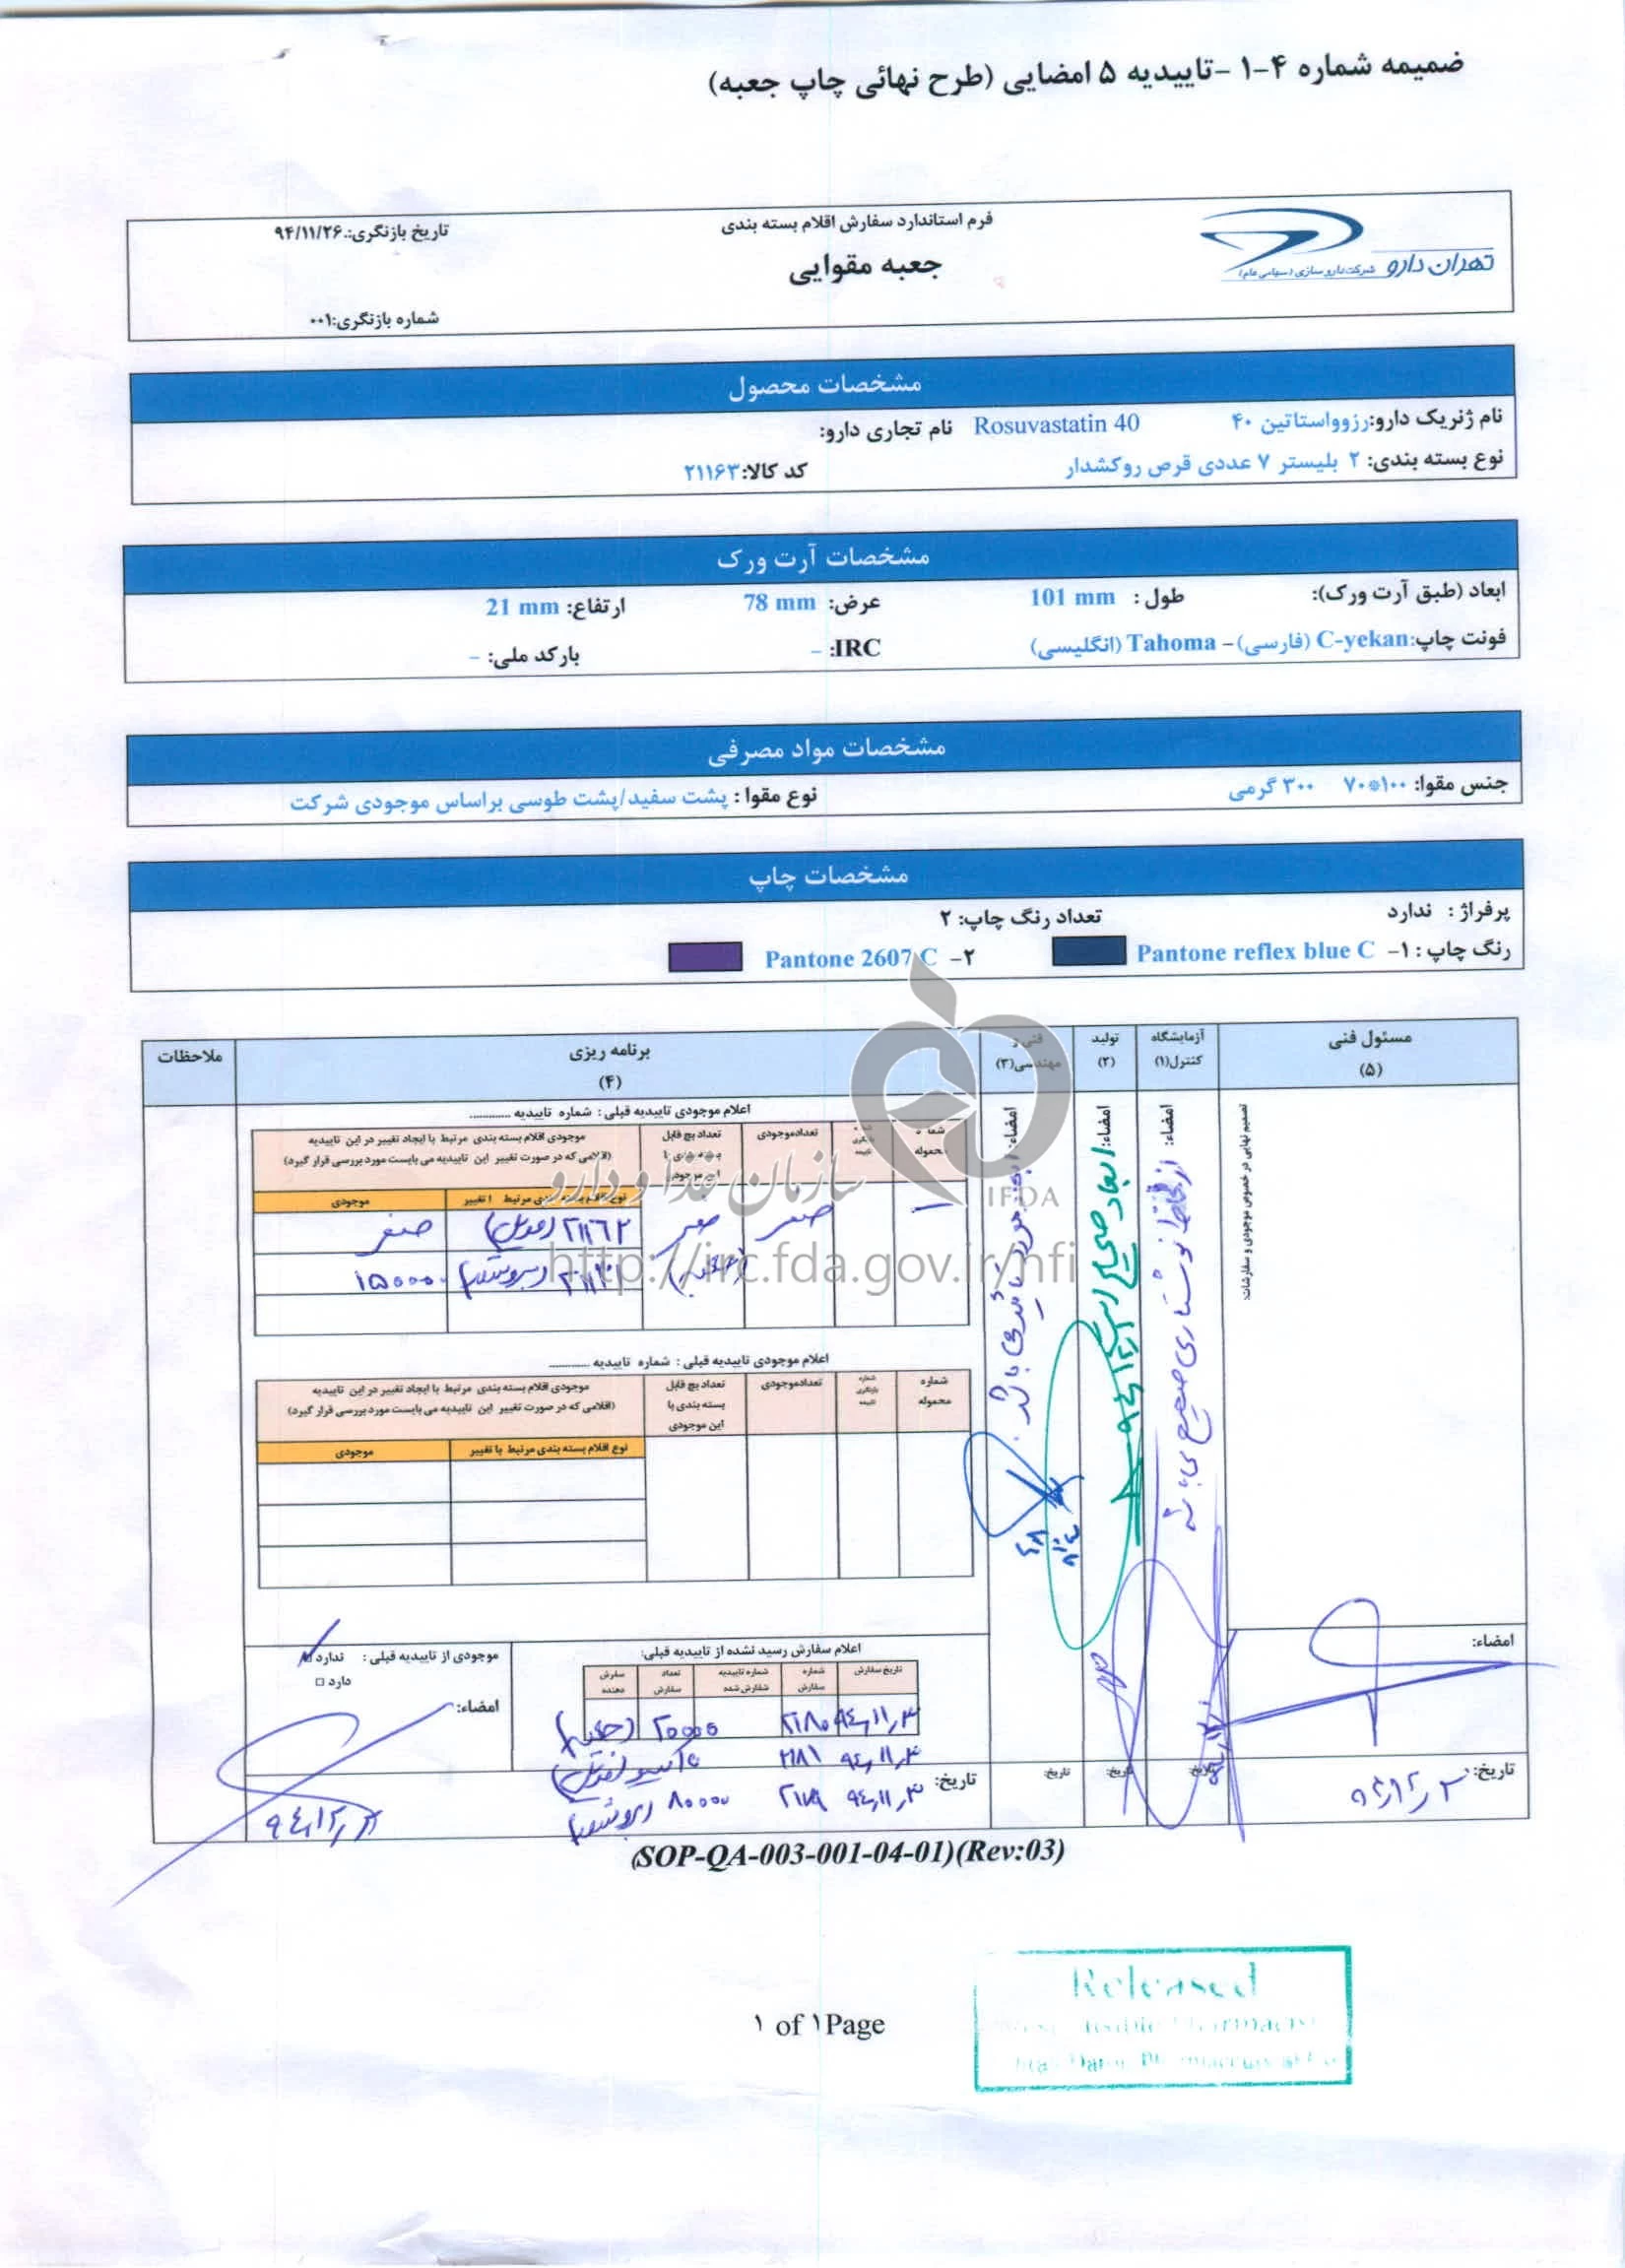 ضمیمه شماره ۴-۱ -تاییدیه ۵ امضایی (طرح نهائی چاپ جعبه)
تهران دارو شرکت دارو سازی (سهامی عام)
فرم استاندارد سفارش اقلام بسته بندی
جعبه مقوایی
تاریخ بازنگری:.۹۴/۱۱/۲۶
شماره بازنگری:۰۰۱
مشخصات محصول
نام ژنریک دارو:رزوواستاتین ۴۰ Rosuvastatin 40 نام تجاری دارو:
نوع بسته بندی: ۲ بلیستر ۷ عددی قرص روکشدار کد کالا:۲۱۱۶۳
مشخصات آرت ورک
ابعاد (طبق آرت ورک): طول : 101 mm عرض: 78 mm ارتفاع: 21 mm
فونت چاپ:C-yekan (فارسی) – Tahoma (انگلیسی) IRC: – بارکد ملی: –
مشخصات مواد مصرفی
جنس مقوا: ۱۰۰*۷۰ ۳۰۰ گرمی نوع مقوا : پشت سفید/پشت طوسی براساس موجودی شرکت
مشخصات چاپ
پرفراژ : ندارد تعداد رنگ چاپ: ۲
رنگ چاپ : ۱- Pantone reflex blue C ۲- Pantone 2607 C
مسئول فنی (۵)
آزمایشگاه کنترل(۱)
تولید (۲)
فنی و مهندسی(۳)
برنامه ریزی (۴)
ملاحظات
تصمیم نهایی در خصوص موجودی و سفارشات:
امضاء: از لحاظ نوشتاری صحیح می باشد
امضاء: ابعاد صحیح است
امضاء: مورد تأیید می باشد.
اعلام موجودی تاییدیه قبلی : شماره تاییدیه ............
شماره محموله
شماره بازنگری تاییدیه
تعدادموجودی
تعداد بچ قابل بسته بندی با این موجودی
موجودی اقلام بسته بندی مرتبط با ایجاد تغییر در این تاییدیه
(اقلامی که در صورت تغییر این تاییدیه می بایست مورد بررسی قرار گیرد)
نوع اقلام بسته بندی مرتبط با تغییر موجودی
۱ صفر صفر ۲۱۱۶۲ (فویل) صفر
(جعبه) (بروشور) ۱۵۰۰۰۰
سازمان غذا و دارو
IFDA
http://irc.fda.gov.ir/nfi
اعلام موجودی تاییدیه قبلی : شماره تاییدیه ............
شماره محموله
شماره بازنگری تاییدیه
تعدادموجودی
تعداد بچ قابل بسته بندی با این موجودی
موجودی اقلام بسته بندی مرتبط با ایجاد تغییر در این تاییدیه
(اقلامی که در صورت تغییر این تاییدیه می بایست مورد بررسی قرار گیرد)
نوع اقلام بسته بندی مرتبط با تغییر موجودی
امضاء:
اعلام سفارش رسید نشده از تاییدیه قبلی:
تاریخ سفارش شماره سفارش شماره تاییدیه سفارش شده تعداد سفارش سفارش دهنده
۹۴,۱۱,۳ ۲۱۸۰ ۲۰۰۰۰ (جعبه)
۹۴,۱۱,۳ ۲۱۸۱
۹۴,۱۱,۳ ۲۱۷۹ ۸۰۰۰۰ (بروشور)
موجودی از تاییدیه قبلی : ندارد
دارد □
امضاء:
تاریخ:
تاریخ:
تاریخ:
تاریخ:
تاریخ:
۹۴,۱۲,۳
(SOP-QA-003-001-04-01)(Rev:03)
Released
۱ of ۱Page